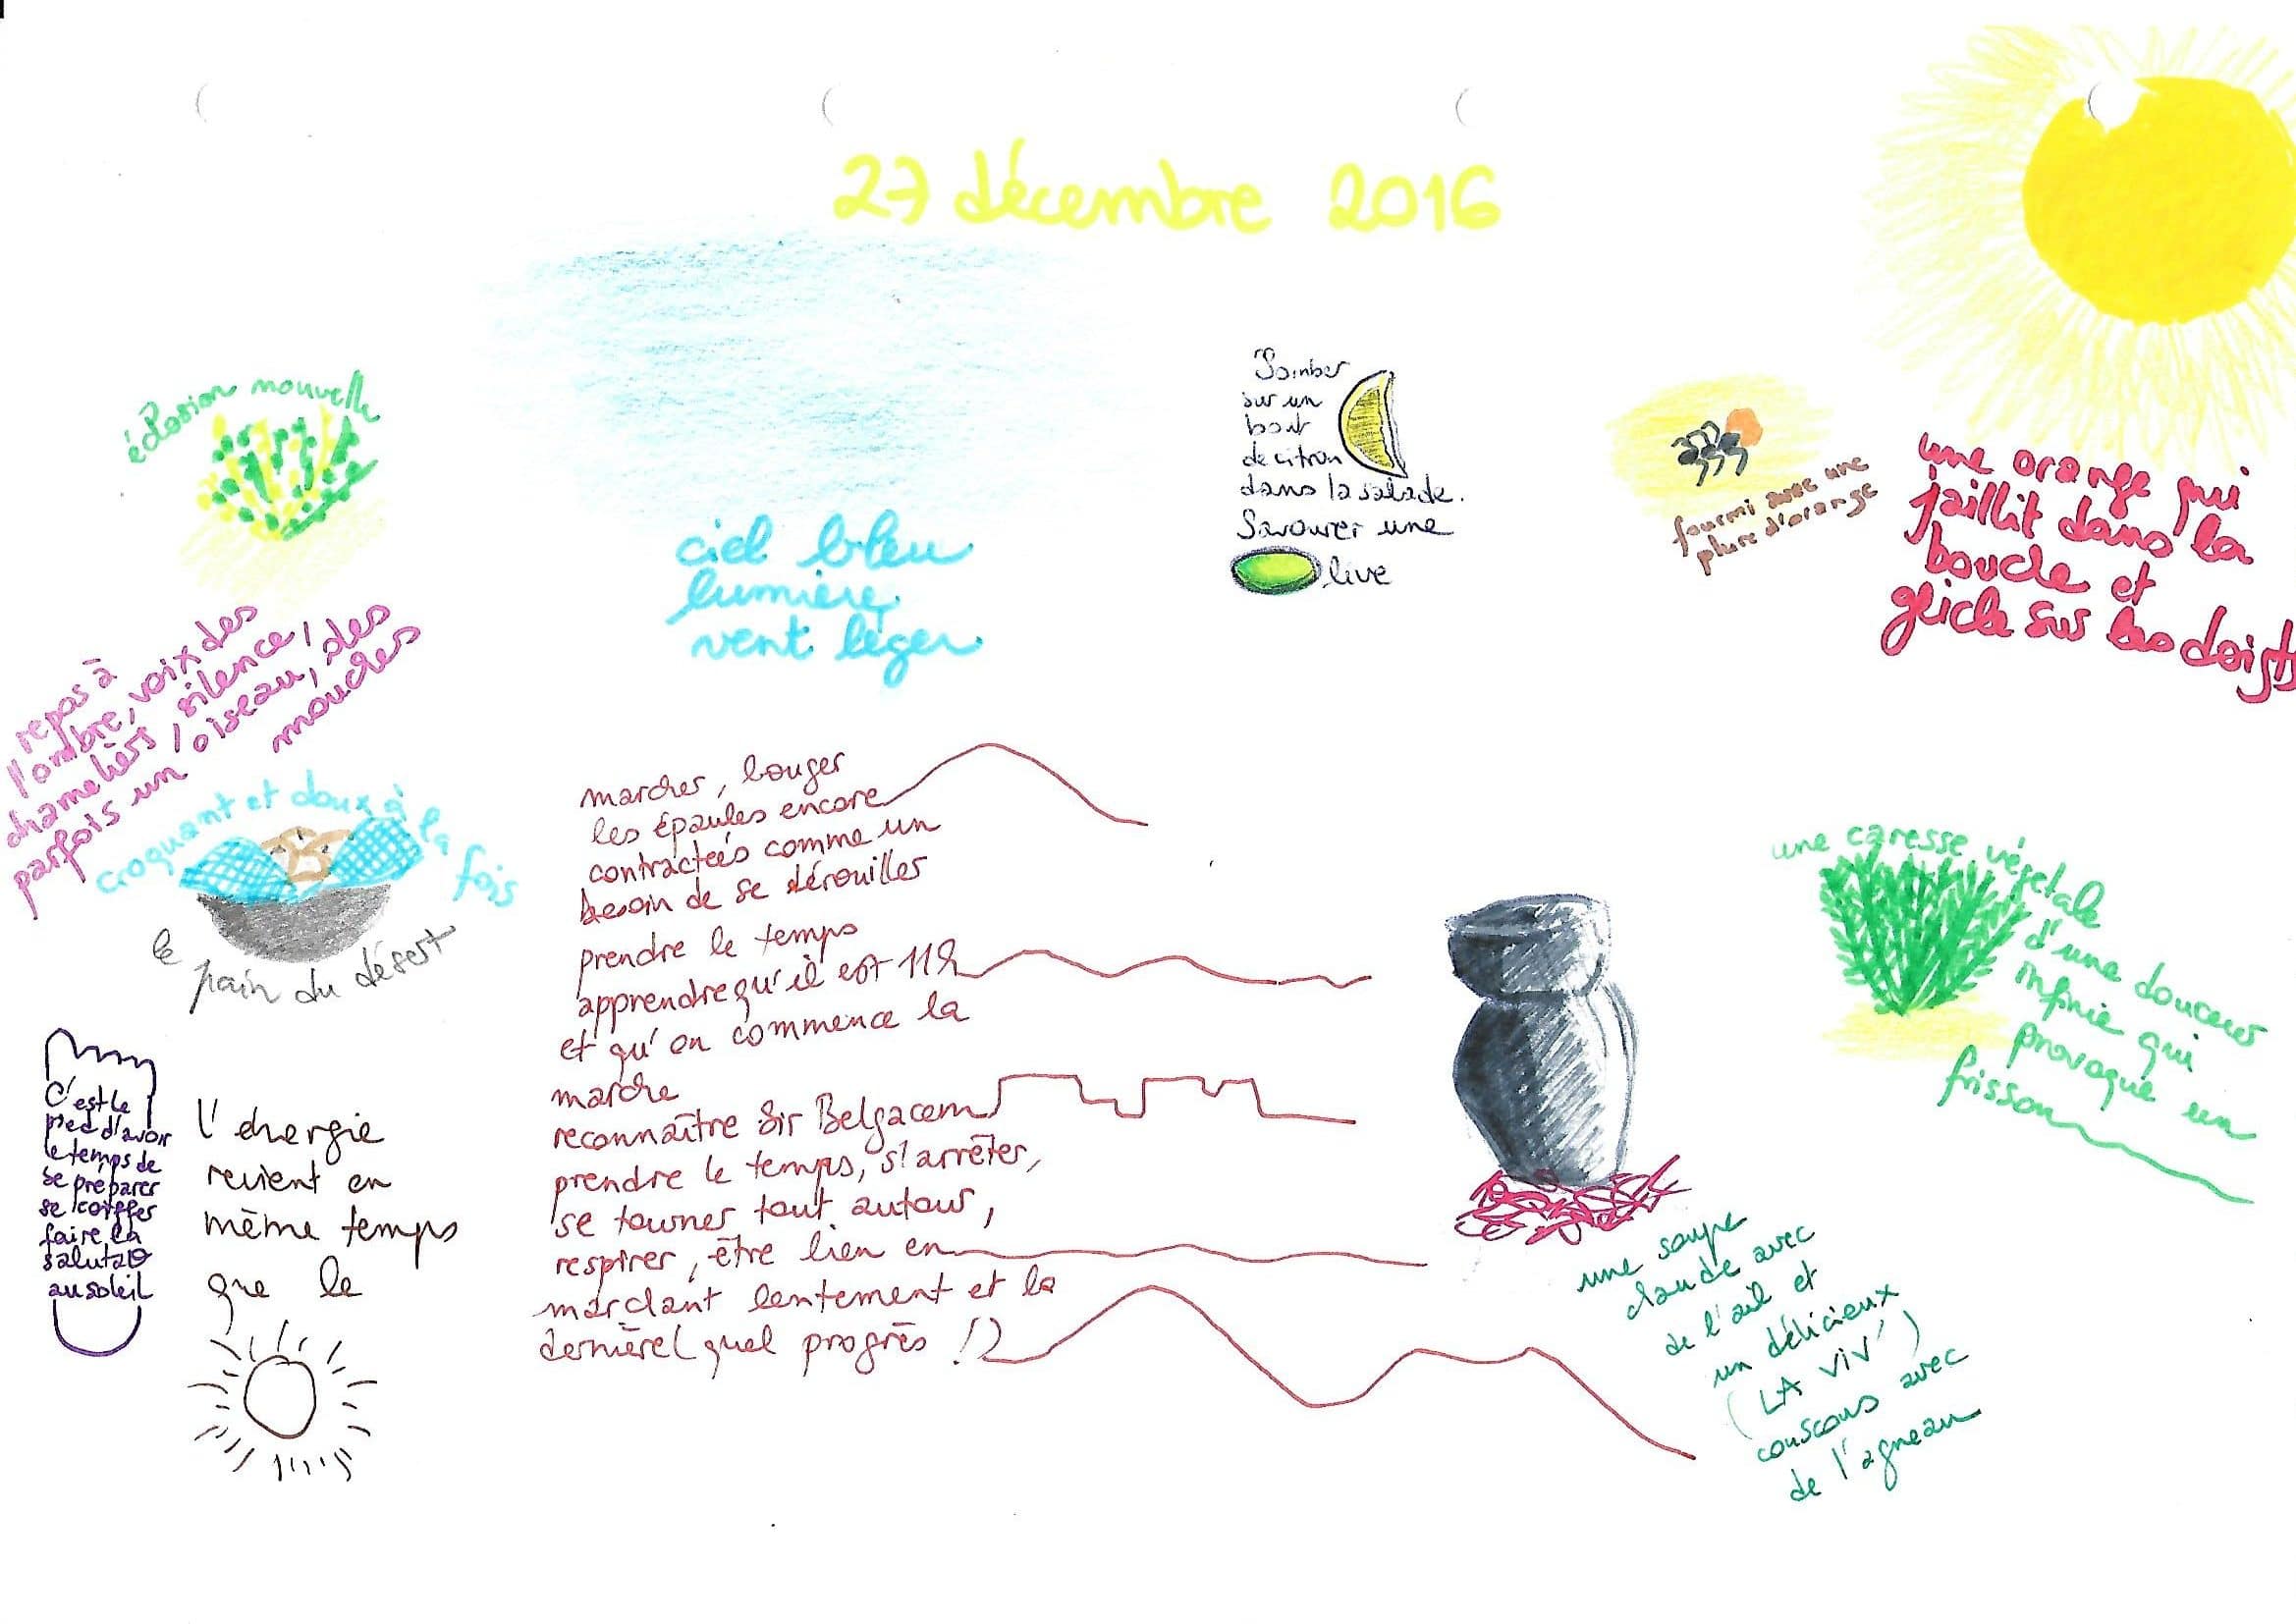 27 décembre 2016
éclosion nouvelle
ciel bleu
lumière
vent léger
Tomber
sur un
bout
de citron
dans la salade.
Savourer une
olive
fourmi avec une
plure d'orange
une orange qui
jaillit dans la
bouche et
gicle sur les doigts
repos à
l'ombre, voix des
chameliers, silence,
parfois un oiseau, des
mouches
croquant et doux à la fois
le pain du désert
C'est le
pied d'avoir
le temps de
se préparer
se coiffer
faire la
salutaO
au soleil
l'énergie
revient en
même temps
que le
marcher, bouger
les épaules encore
contractées comme un
besoin de se dérouiller
prendre le temps
apprendre qu'il est 11h
et qu'on commence la
marche
reconnaître Sir Belgacem
prendre le temps, s'arrêter,
se tourner tout autour,
respirer, être bien en
marchant lentement et la
dernière (quel progrès !)
une caresse végétale
d'une douceur
infinie qui
provoque un
frisson
une soupe
chaude avec
de l'ail et
un délicieux
(LA VIV')
couscous avec
de l'agneau